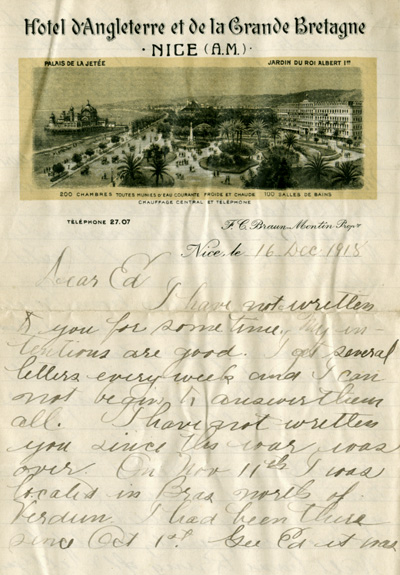 Hotel d'Angleterre et de la Grande Bretagne
· NICE (A.M.) ·
PALAIS DE LA JETÉE
JARDIN DU ROI ALBERT Ier
200 CHAMBRES TOUTES MUNIES D'EAU COURANTE FROIDE ET CHAUDE 100 SALLES DE BAINS
CHAUFFAGE CENTRAL ET TÉLÉPHONE
TÉLÉPHONE 27.07
F. C. Braun-Montin Propr
Nice, le 16 Dec 1918
Dear Ed
I have not written
to you for some time. My in-
tentions are good. I get several
letters every week and I can
not begin to answer them
all. I have not written
you since the war was
over. On Nov 11th I was
located in Bras north of
Verdun. I had been there
since Oct 1st. Gee Ed it was